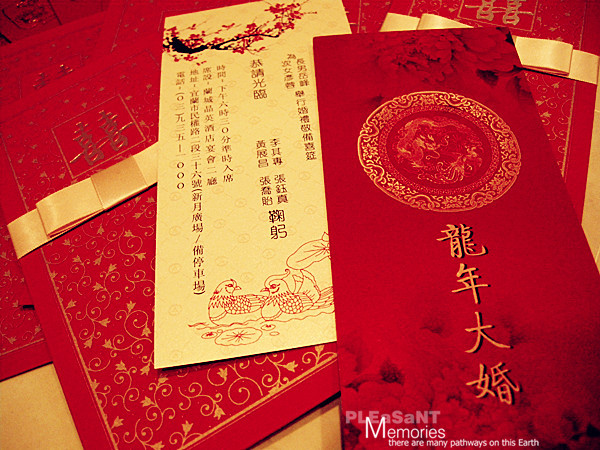 長男岳峰 舉行婚禮敬備喜筵
為次女彥蓉
恭請光臨
李其專 張鈺真
黃展昌 張喬貽
鞠躬
時間:下午六時三0分準時入席
席設:蘭城晶英酒店宴會二廳
地址:宜蘭市民權路二段三十六號(新月廣場/備停車場)
電話:0三九三五一000
龍年大婚
囍
囍
PLEaSaNT
Memories
there are many pathways on this Earth